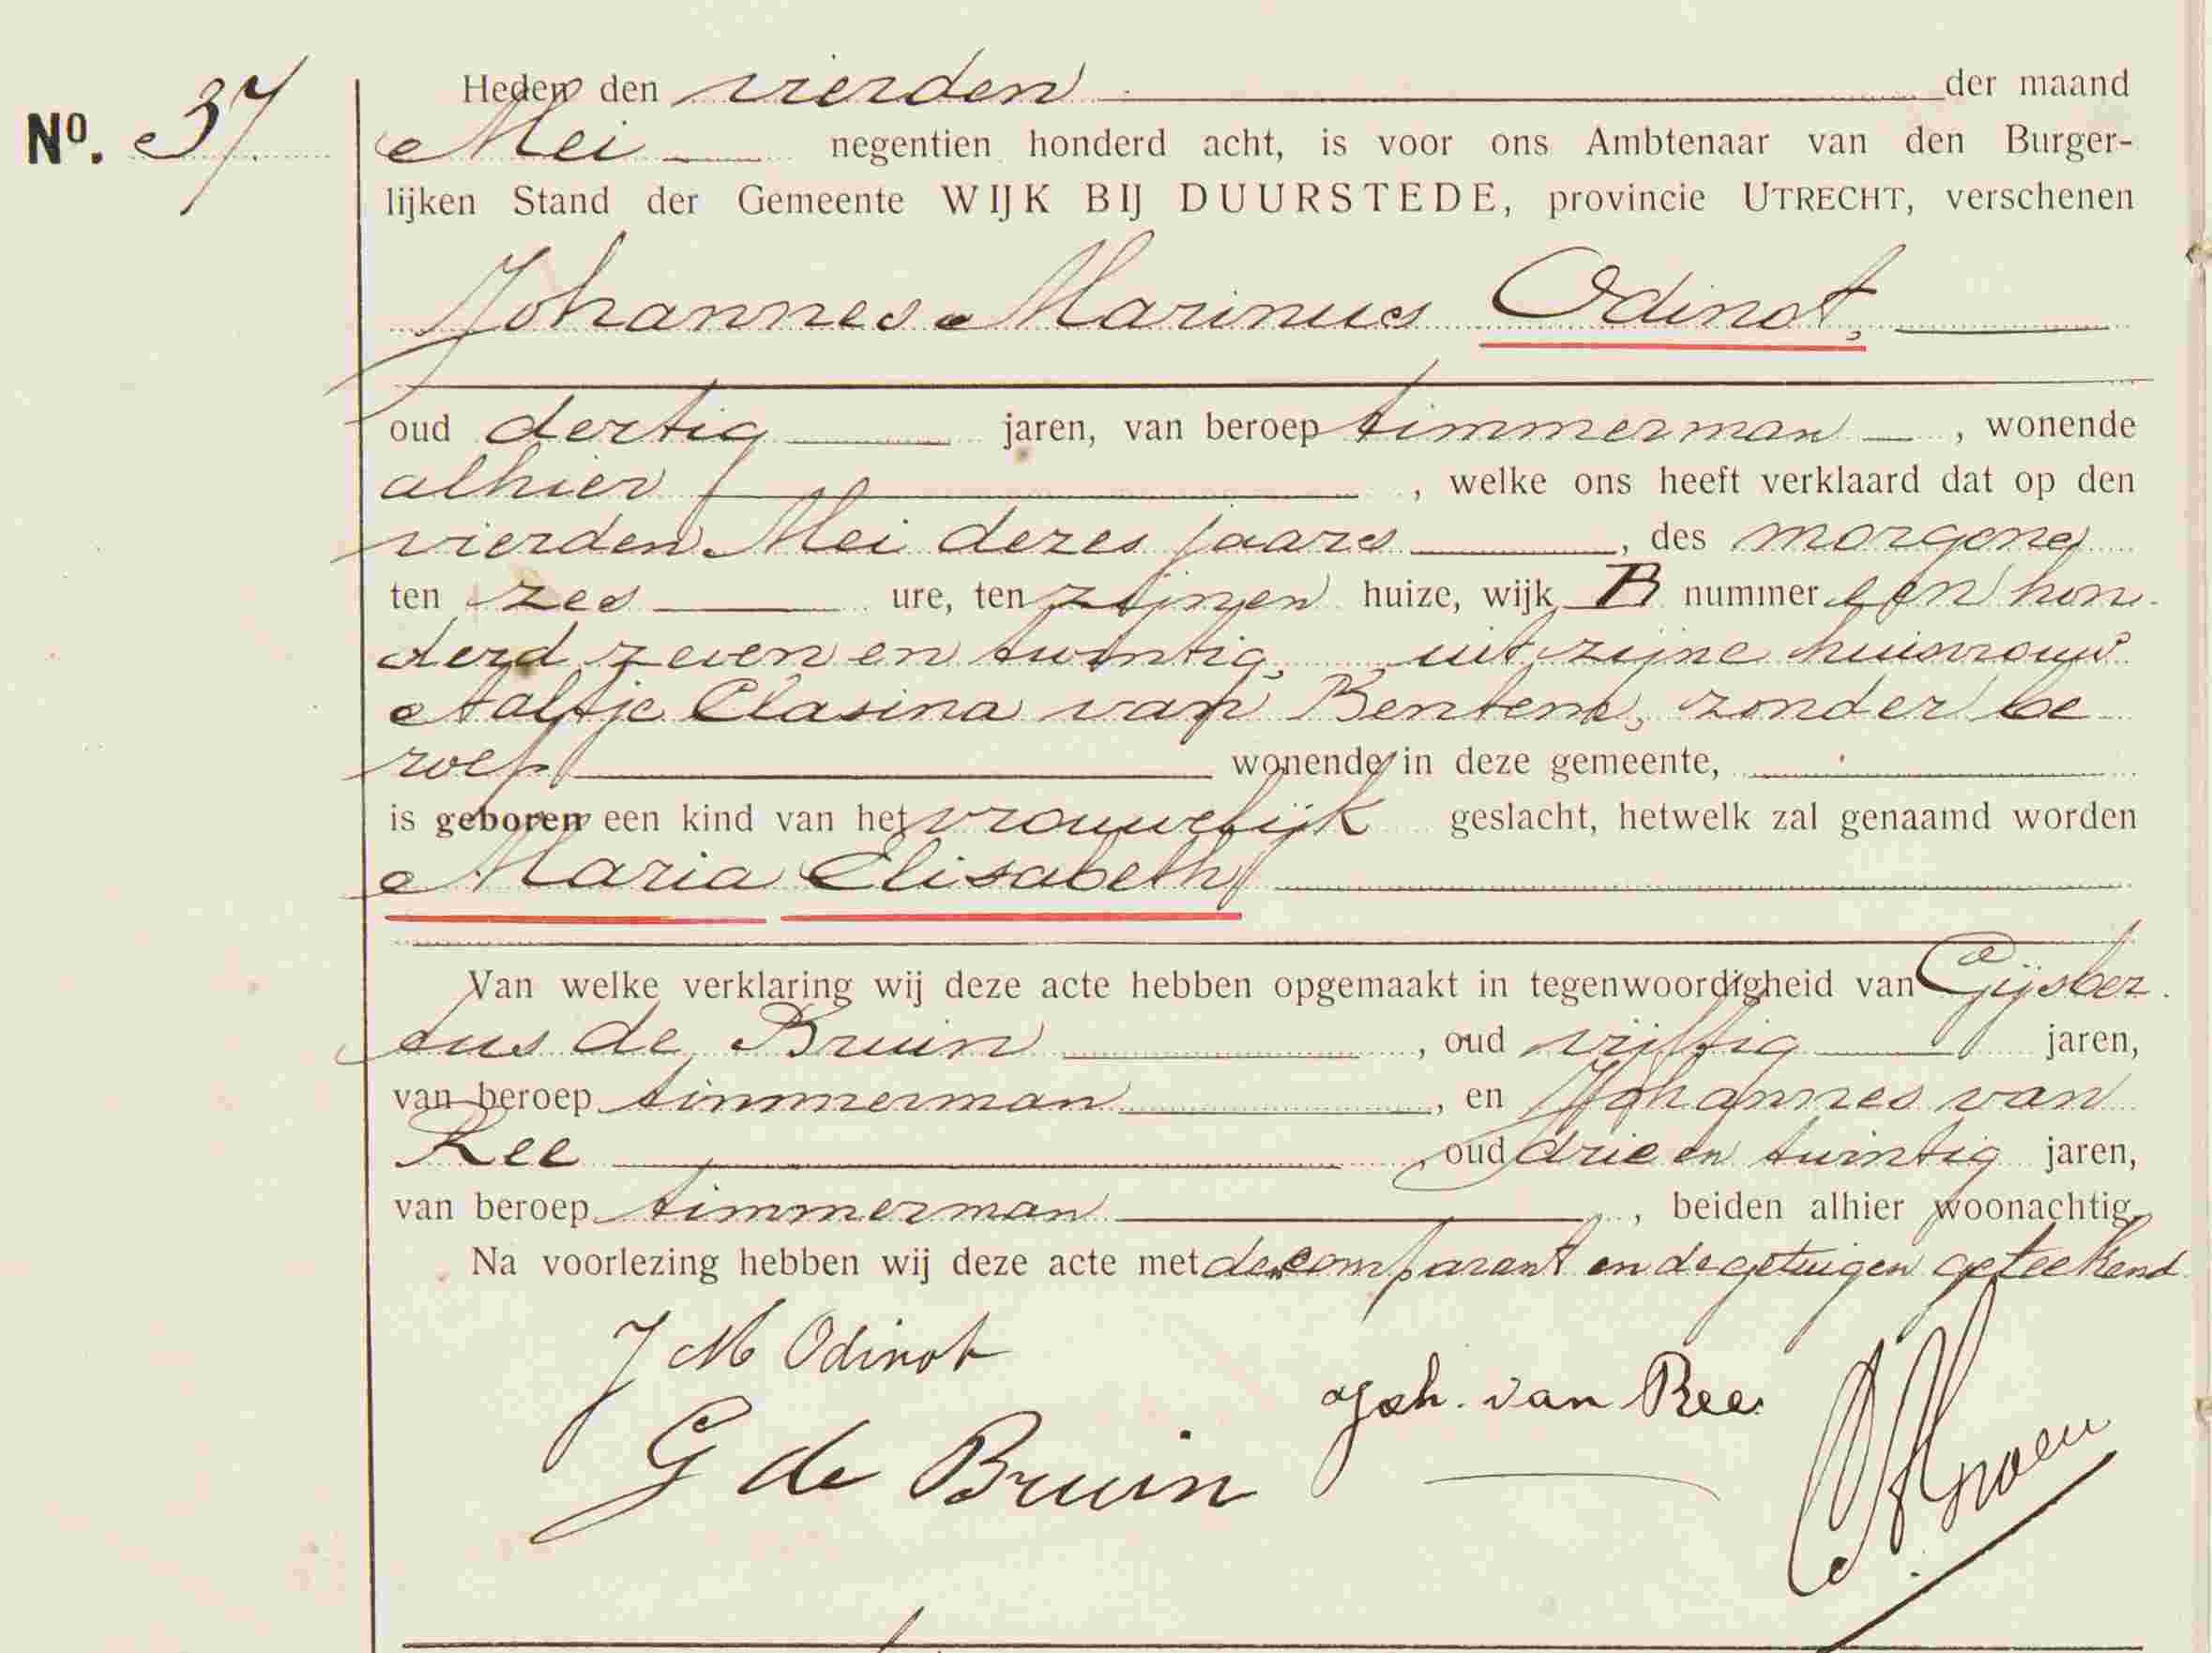 Nº. 37
Heden den vierden der maand
Mei negentien honderd acht, is voor ons Ambtenaar van den Burger-
lijken Stand der Gemeente WIJK BIJ DUURSTEDE, provincie UTRECHT, verschenen
Johannes Marinus Odinot,
oud dertig jaren, van beroep timmerman, wonende
alhier, welke ons heeft verklaard dat op den
vierden Mei dezes jaars, des morgens
ten zes ure, ten zijnen huize, wijk B nummer een hon-
derd zeven en twintig, uit zijne huisvrouw
Aaltje Clasina van, zonder be
roep wonende in deze gemeente,
is geboren een kind van het vrouwelijk geslacht, hetwelk zal genaamd worden
Maria Elisabeth
Van welke verklaring wij deze acte hebben opgemaakt in tegenwoordigheid van Gijsber
tus de Bruin, oud vijftig jaren,
van beroep timmerman, en Johannes van
Ree, oud drie en twintig jaren,
van beroep timmerman, beiden alhier woonachtig.
Na voorlezing hebben wij deze acte met den comparant en de getuigen geteekend
J M Odinot
Joh. van Ree
G de Bruin